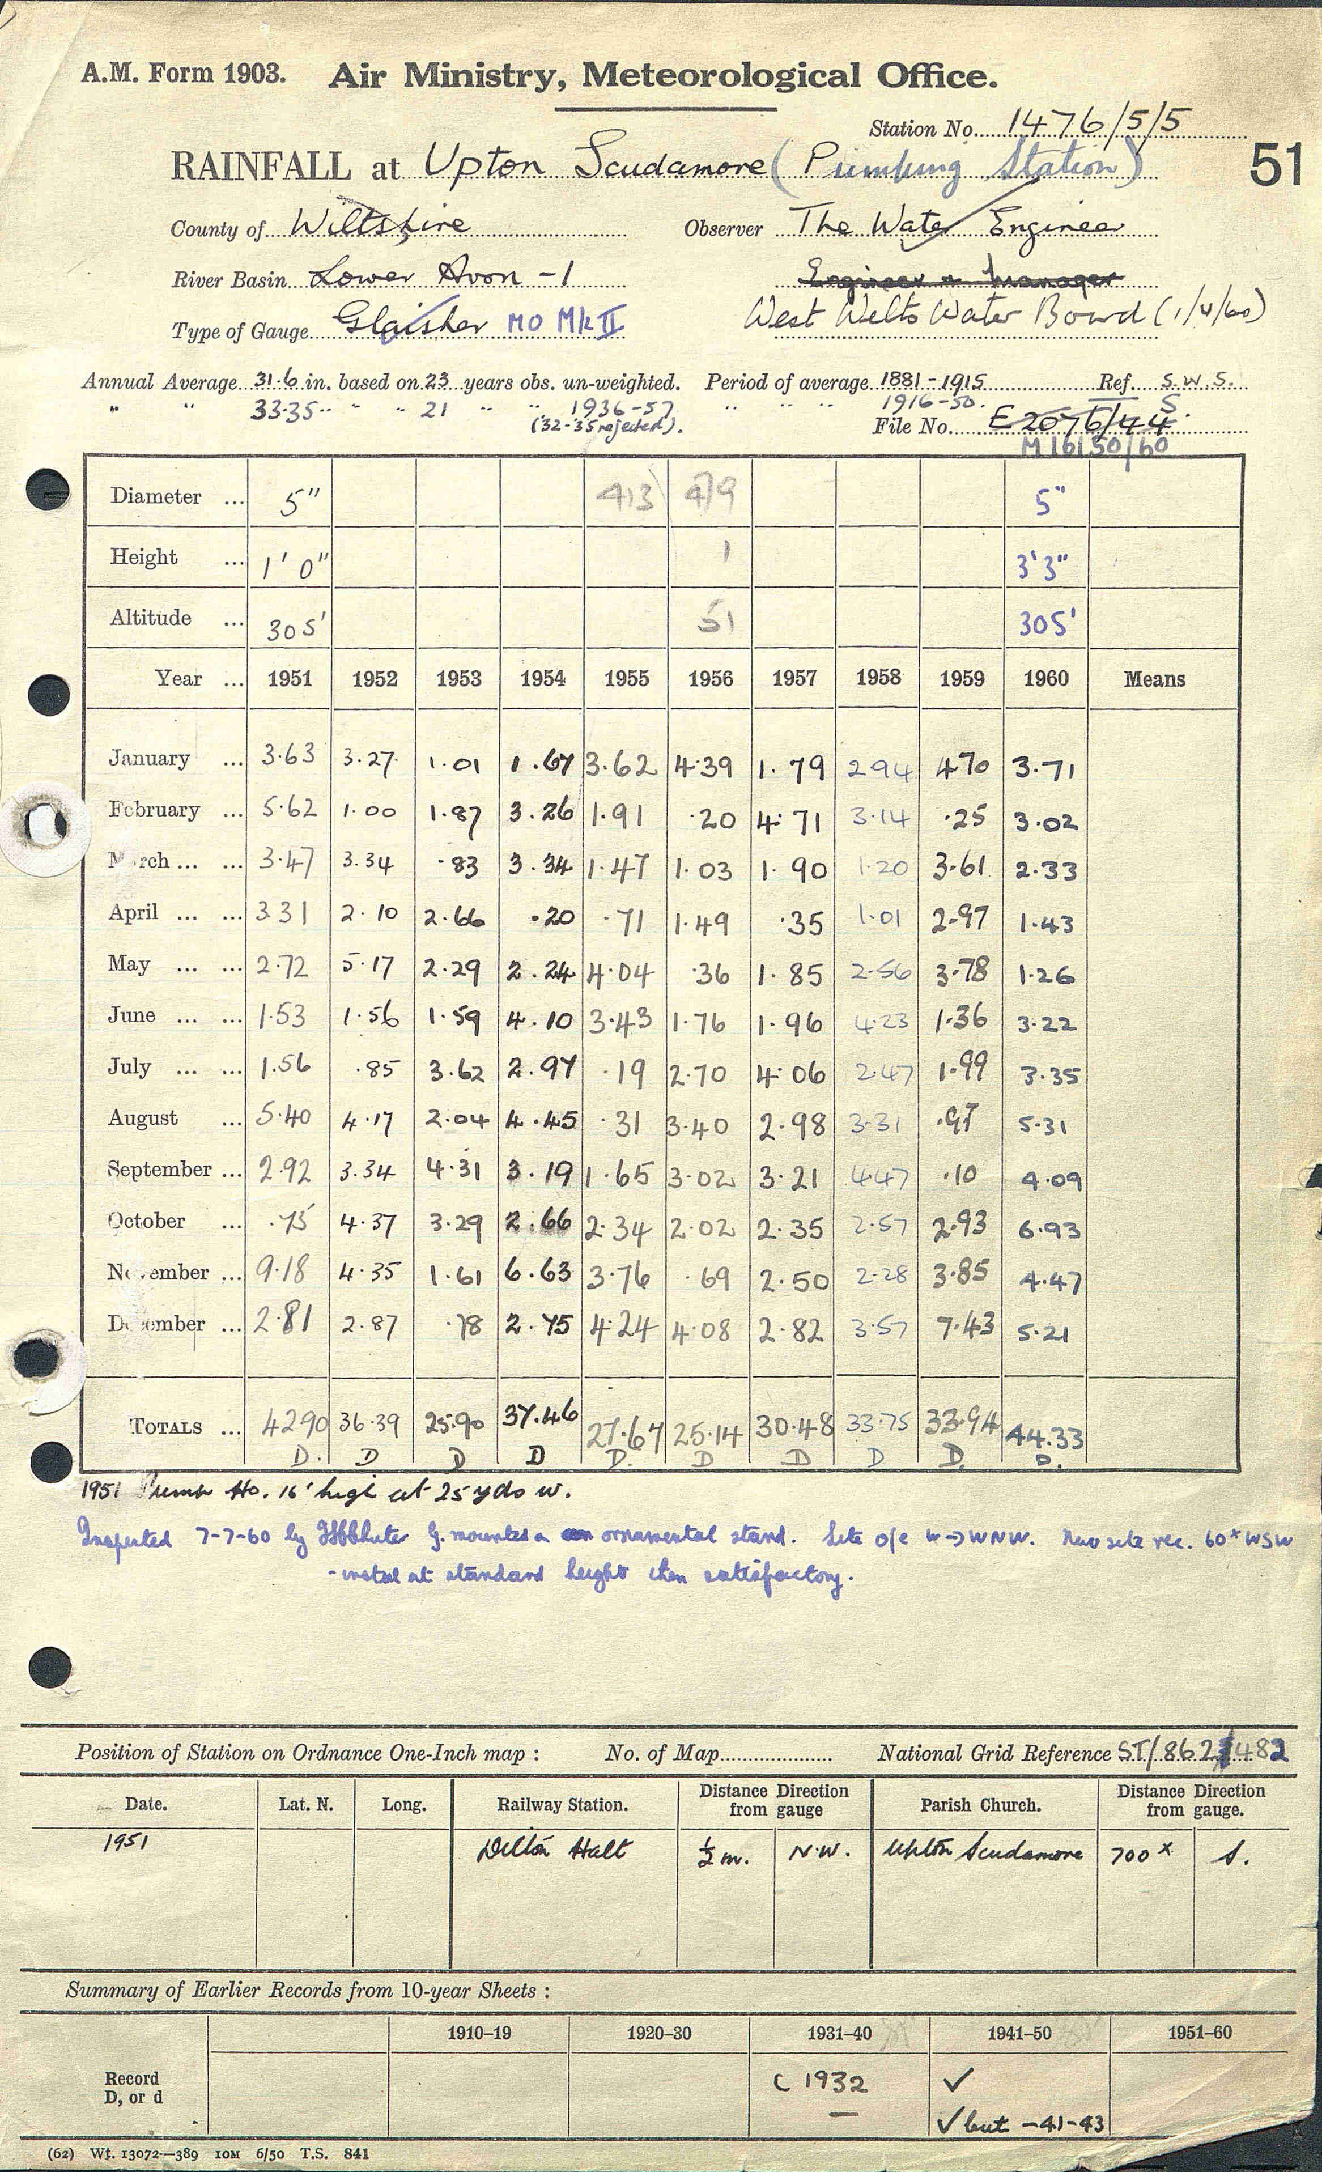 A.M. Form 1903. Air Ministry, Meteorological Office.
Station No. 1476/5/5
RAINFALL at Upton Scudamore (Pumping Station) 51
County of Wiltshire Observer The Water Engineer
River Basin Lower Avon - 1 Engineer & Manager
Type of Gauge Glaisher MO Mk II West Wilts Water Board (1/4/60)
Annual Average 31.6 in. based on 23 years obs. un-weighted. Period of average 1881-1915 Ref. S.W.S.
" " 33.35 " " 21 " " 1936-57 " " " 1916-50. S.
(32-35 rejected). File No. E 2076/44
M16150/60
Diameter ... 5" 413 479 5"
Height ... 1' 0" 1 3'3"
Altitude ... 305' 51 305'
Year ... 1951 1952 1953 1954 1955 1956 1957 1958 1959 1960 Means
January ... 3.63 3.27 1.01 1.67 3.62 4.39 1.79 2.94 4.70 3.71
February ... 5.62 1.00 1.87 3.26 1.91 .20 4.71 3.14 .25 3.02
March ... ... 3.47 3.34 .83 3.34 1.47 1.03 1.90 1.20 3.61 2.33
April ... ... 3.31 2.10 2.66 .20 .71 1.49 .35 1.01 2.97 1.43
May ... ... 2.72 5.17 2.29 2.24 4.04 .36 1.85 2.56 3.78 1.26
June ... ... 1.53 1.56 1.59 4.10 3.43 1.76 1.96 4.23 1.36 3.22
July ... ... 1.56 .85 3.62 2.97 .19 2.70 4.06 2.47 1.99 3.35
August ... 5.40 4.17 2.04 4.45 .31 3.40 2.98 3.31 .97 5.31
September ... 2.92 3.34 4.31 3.19 1.65 3.02 3.21 4.47 .10 4.09
October ... .75 4.37 3.29 2.66 2.34 2.02 2.35 2.57 2.93 6.93
November ... 9.18 4.35 1.61 6.63 3.76 .69 2.50 2.28 3.85 4.47
December ... 2.81 2.87 .78 2.75 4.24 4.08 2.82 3.57 7.43 5.21
TOTALS ... 42.90 36.39 25.90 37.46 27.67 25.14 30.48 33.75 33.94 44.33
D. D D D D. D D D D. D.
1951 Pump Ho. 16' high at 25 yds W.
Inspected 7-7-60 by G. mounted on ornamental stand. Site o/e W→WNW. New site rec. 60ˣ WSW
- instal at standard height then satisfactory.
Position of Station on Ordnance One-Inch map : No. of Map National Grid Reference ST/862 482
Date. Lat. N. Long. Railway Station. Distance Direction from gauge Parish Church. Distance Direction from gauge.
1951 Dilton Halt ½ m. N.W. Upton Scudamore 700ˣ S.
Summary of Earlier Records from 10-year Sheets :
1910–19 1920–30 1931–40 1941–50 1951–60
Record C 1932 ✓
D, or d — ✓ but -41-43
(62) Wt. 13072—389 10M 6/50 T.S. 841